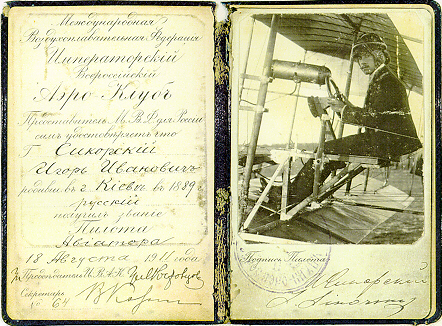 Международная
Воздухоплавательная Федерація
Императорскій
Всероссійскій
Аэро-Клубъ
Представитель М. В. Ф. для Россіи
симъ удостовѣряетъ что
Г. Сикорскій
Игорь Ивановичъ
родивш. въ г. Кіевѣ въ 1889 г.
русскій
получилъ званіе
Пилота
Авіатора
18 Августа 1911 года
Предсѣдатель И. В. А. К.
Секретарь
№ 64
Подпись Пилота
И Сикорскій